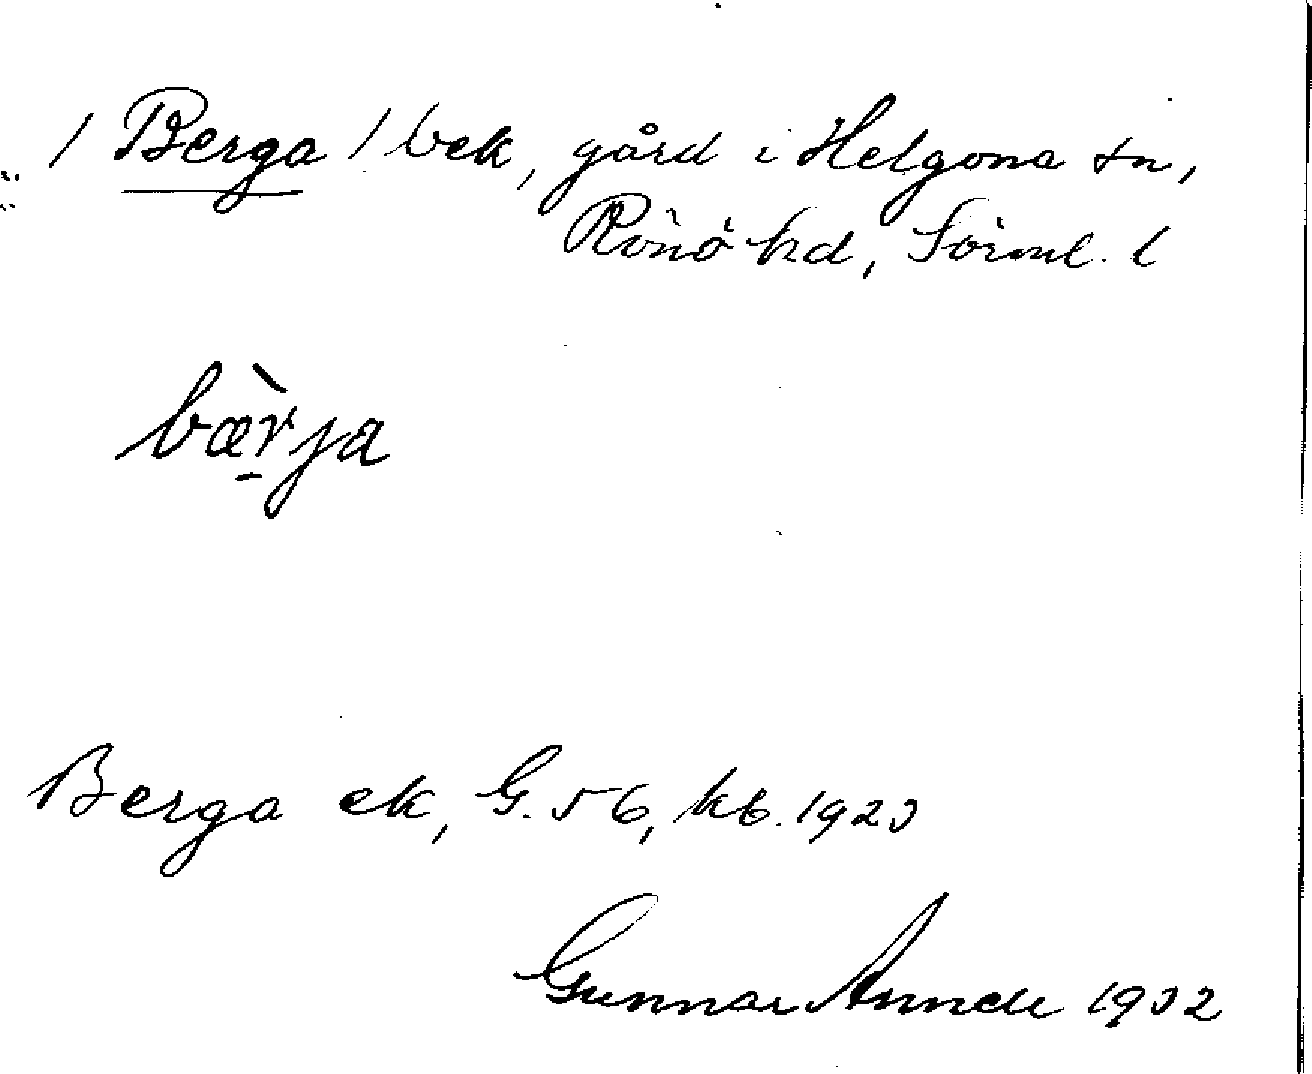 / Berga / bek, gård i Helgona sn,
Rönö hd, Sörml. l
bæ̠r̀ja
Berga ek, G. 56, kb. 1923
Gunnar 1932